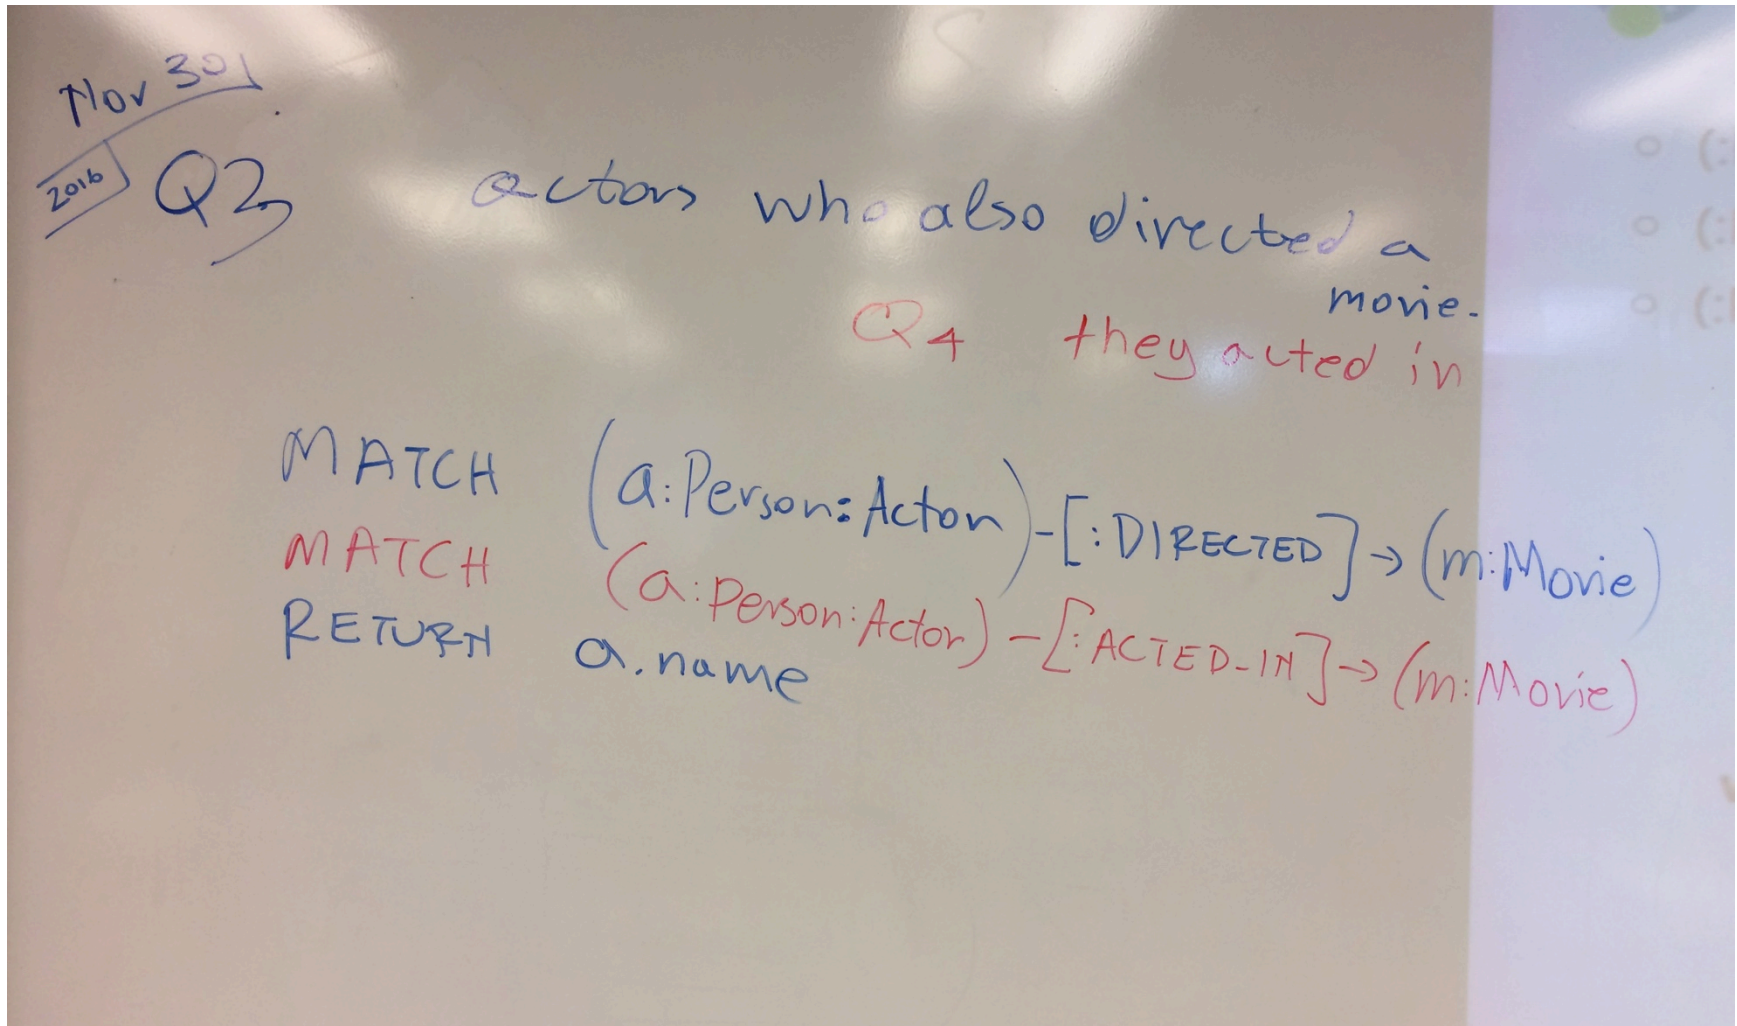 Nov 30
2016
Q3 actors who also directed a
movie.
Q4 they acted in
MATCH (a:Person:Actor)-[:DIRECTED]→(m:Movie)
MATCH (a:Person:Actor)-[:ACTED_IN]→(m:Movie)
RETURN a.name